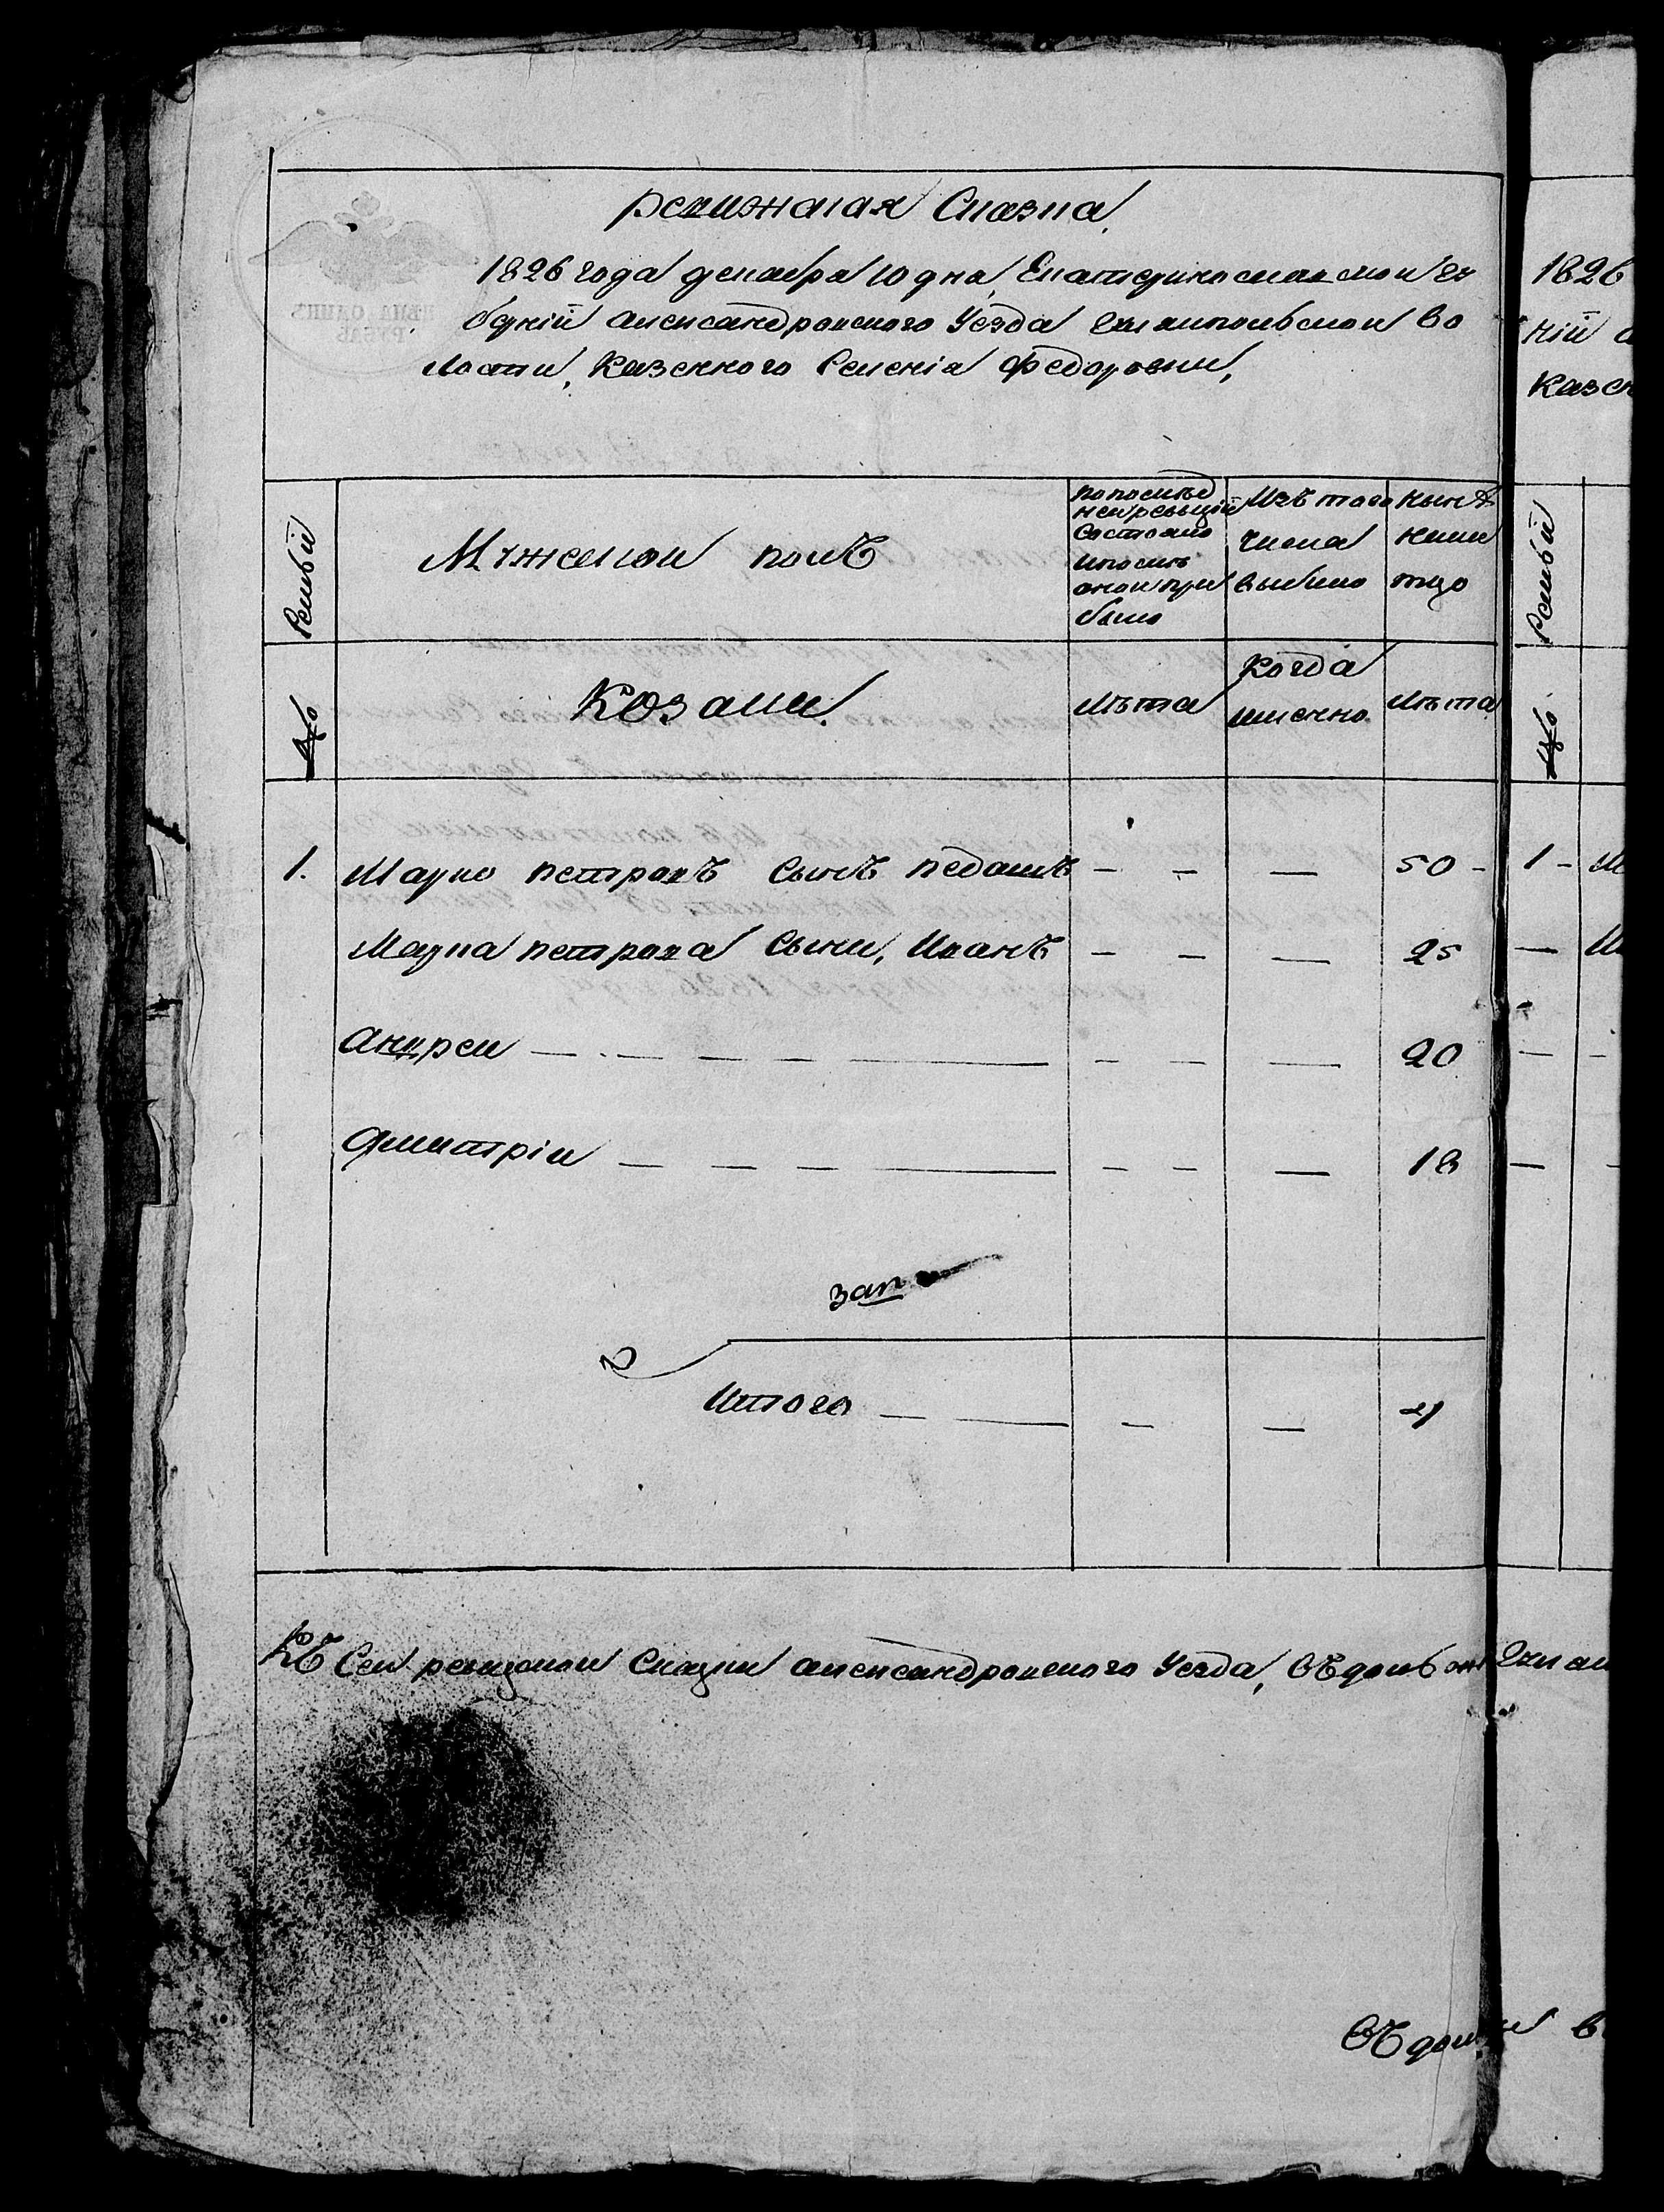 Ревижская Сказка
1826 года декабря 10 дня, Екатеринославской гу
берній александровского Уезда волости
лости, Казенного Селенія Федоровки,
Мужеской полъ
по послед
ней ревизіи
состояло
и после
оной при
было
Изъ того
числа
выбыло
ныне
на
лицо
Семьи
№
Козаки
лета
когда
имянно
лета
1. Марко петровъ Сынъ педашъ — — — 50
Марка петрова Сыны, Иванъ — — — 25
андреи — — — 20
Дмитріи — — — 18
Итого — — — 4
Къ Сеи ревизской Сказки александровского Уезда,
1826
ній
Казен
Семьи
№
1